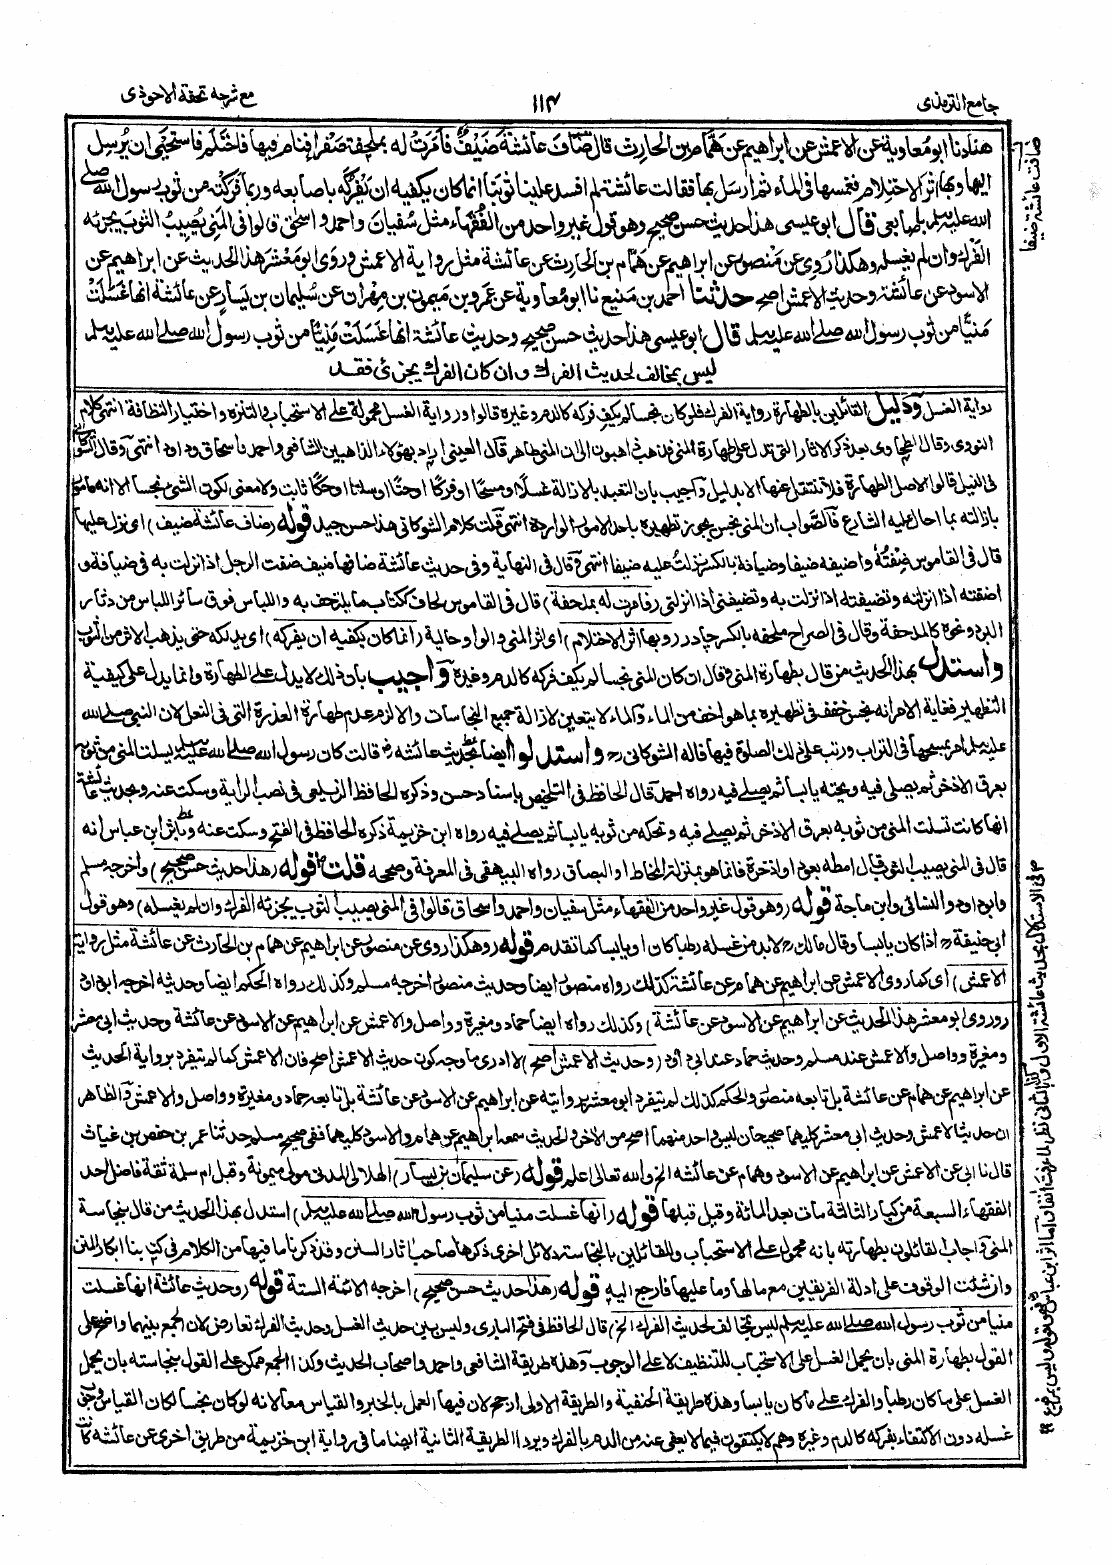 جامع الترمذى
١١٤
مع شرحه تحفة الاحوذى
هناد نا ابو معاوية عن الاعمش عن ابراهيم عن همام بن الحارث قال ضاف عائشة ضيف فأمرت له بملحفة صفراء فنام فيها فاحتلم فاستحيى ان يرسل
اليها وبها اثر الاحتلام فغمسها فى الماء ثم ارسل بها فقالت عائشة لم افسد علينا ثوبنا انما كان يكفيه ان يفركه باصابعه وربما فركته من ثوب رسول الله صلى
الله عليه وسلم باصابعى قال ابو عيسى هذا حديث حسن صحيح وهو قول غير واحد من الفقهاء مثل سفيان واحمد واسحق قالوا فى المنى يصيب الثوب يجزئه
الفرك وان لم يغسله وهكذا روى عن منصور عن ابراهيم عن همام بن الحارث عن عائشة مثل رواية الاعمش وروى ابو معشر هذا الحديث عن ابراهيم عن
الاسود عن عائشة وحديث الاعمش اصح حدثنا احمد بن منيع نا ابو معاوية عن عمرو بن ميمون بن مهران عن سليمان بن يسار عن عائشة انها غسلت
منيا من ثوب رسول الله صلى الله عليه وسلم قال ابو عيسى هذا حديث حسن صحيح وحديث عائشة انها غسلت منيا من ثوب رسول الله صلى الله عليه وسلم
ليس بمخالف لحديث الفرك وان كان الفرك يجزئ فقد
رواية الغسل ودليل القائلين بالطهارة رواية الفرك فلو كان نجسا لم يكف فركه كالدم وغيره قالوا ورواية الغسل محمولة على الاستحباب والتنزه واختيار النظافة انتهى كلام
النووى وقال الطحاوى بعد ذكر الاثار التى تدل على طهارة المنى فذهب ذاهبون الى ان المنى طاهر قال العينى اراد بهؤلاء الذاهبين الشافعى واحمد واسحاق وداود انتهى وقال الشوكانى
فى النيل قالوا الاصل الطهارة فلا تنتقل عنها الا بدليل واجيب بان التعبد بالازالة غسلا او مسحا او فركا او حتا او سلتا او حكا ثابت ولا معنى لكون الشئ نجسا الا انه مامور
بازالته بما احال عليه الشارع فالصواب ان المنى نجس يجوز تطهيره باحد الامور الواردة انتهى قلت كلام الشوكانى هذا حسن جيد قوله (ضاف عائشة ضيف) اى نزل عليها
قال فى القاموس ضفته واضيفه ضيفا وضيافة بالكسر نزلت عليه ضيفا انتهى وقال فى النهاية وفى حديث عائشة ضافها ضيف ضفت الرجل اذا نزلت به فى ضيافة و
اضفته اذا انزلته وتضيفته اذا نزلت به وتضيفنى اذا انزلنى (فامرت له بملحفة) قال فى القاموس لحاف ككتاب ما يلتحف به واللباس فوق سائر اللباس من دثار
البرد ونحوه كالملحفة وقال فى الصراح ملحفة بالكسر چادر (وبها اثر الاحتلام) اى اثر المنى والواو حالية (انما كان يكفيه ان يفركه) اى يدلكه حتى يذهب الاثر من الثوب
واستدل بهذا الحديث من قال بطهارة المنى وقال ان كان المنى نجسا لم يكف فركه كالدم وغيره واجيب بان ذلك لا يدل على الطهارة وانما يدل على كيفية
التطهير فغاية الامر انه نجس خفف فى تطهيره بما هو اخف من الماء والماء لا يتعين لازالة جميع النجاسات والا لزم عدم طهارة العذرة التى فى النعل لان النبى صلى الله
عليه وسلم امر بمسحها فى التراب ورتب على ذلك الصلوة فيها قاله الشوكانى واستدلوا ايضا بحديث عائشة قالت كان رسول الله صلى الله عليه وسلم يسلت المنى من ثوبه
بعرق الاذخر ثم يصلى فيه ويحته يابسا ثم يصلى فيه رواه احمد قال الحافظ فى التلخيص باسناد حسن وذكره الحافظ الزيلعى فى نصب الراية وسكت عنه وبحديث عائشة
انها كانت تسلت المنى من ثوبه بعرق الاذخر ثم يصلى فيه وتحكه من ثوبه يابسا ثم يصلى فيه رواه ابن خزيمة ذكره الحافظ فى الفتح وسكت عنه وباثر ابن عباس انه
قال فى المنى يصيب الثوب قال امطه بعود او اذخرة فانما هو بمنزلة المخاط او البصاق رواه البيهقى فى المعرفة وصححه قلت قوله (هذا حديث حسن صحيح) واخرجه مسلم
وابو داود والنسائى وابن ماجة قوله (وهو قول غير واحد من الفقهاء مثل سفيان واحمد واسحاق قالوا فى المنى يصيب الثوب يجزئه الفرك وان لم يغسله) وهو قول
ابى حنيفة اذا كان يابسا وقال مالك لا بد من غسله رطبا كان او يابسا كما تقدم قوله (وهكذا روى عن منصور عن ابراهيم عن همام بن الحارث عن عائشة مثل رواية
الاعمش) اى كما روى الاعمش عن ابراهيم عن همام عن عائشة كذلك رواه منصور ايضا وحديث منصور اخرجه مسلم وكذلك رواه الحكم ايضا وحديثه اخرجه ابو داود
(وروى ابو معشر هذا الحديث عن ابراهيم عن الاسود عن عائشة) وكذلك رواه ايضا حماد ومغيرة وواصل والاعمش عن ابراهيم عن الاسود عن عائشة وحديث ابى معشر
ومغيرة وواصل والاعمش عند مسلم وحديث حماد عند ابى داود (وحديث الاعمش اصح) لا ادرى ما وجه كون حديث الاعمش اصح فان الاعمش كما لم يتفرد برواية الحديث
عن ابراهيم عن همام عن عائشة بل تابعه منصور والحكم كذلك لم يتفرد ابو معشر بروايته عن ابراهيم عن الاسود عن عائشة بل تابعه حماد ومغيرة وواصل والاعمش والظاهر
ان حديث الاعمش وحديث ابى معشر كليهما صحيحان ليس واحد منهما اصح من الاخر والحديث سمعه ابراهيم عن همام والاسود كليهما ففى صحيح مسلم حدثنا عمر بن حفص بن غياث
قال نا ابى عن الاعمش عن ابراهيم عن الاسود وهمام عن عائشة الخ والله تعالى اعلم قوله (عن سليمان بن يسار) الهلالى المدنى مولى ميمونة وقيل ام سلمة ثقة فاضل احد
الفقهاء السبعة من كبار الثالثة مات بعد المائة وقيل قبلها قوله (انها غسلت منيا من ثوب رسول الله صلى الله عليه وسلم) استدل بهذا الحديث من قال بنجاسة
المنى واجاب القائلون بطهارته بانه محمول على الاستحباب وللقائلين بالنجاسة دلائل اخرى ذكرها صاحب اثار السنن وقد ذكرنا ما فيها من الكلام فى كتابنا ابكار المنن
وان شئت الوقوف على ادلة الفريقين مع ما لها وما عليها فارجع اليه قوله (هذا حديث حسن صحيح) اخرجه الائمة الستة قوله (وحديث عائشة انها غسلت
منيا من ثوب رسول الله صلى الله عليه وسلم ليس بمخالف لحديث الفرك الخ) قال الحافظ فى فتح البارى وليس بين حديث الغسل وحديث الفرك تعارض لان الجمع بينهما واضح على
القول بطهارة المنى بان يحمل الغسل على الاستحباب للتنظيف لا على الوجوب وهذه طريقة الشافعى واحمد واصحاب الحديث وكذا الجمع ممكن على القول بنجاسته بان يحمل
الغسل على ما كان رطبا والفرك على ما كان يابسا وهذه طريقة الحنفية والطريقة الاولى ارجح لان فيها العمل بالخبر والقياس معا لانه لو كان نجسا لكان القياس وجوب
غسله دون الاكتفاء بفركه كالدم وغيره وهم لا يكتفون فيما لا يعفى عنه من الدم بالفرك ويرد الطريقة الثانية ايضا ما فى رواية ابن خزيمة من طريق اخرى عن عائشة كانت
ضافت عائشة ضيفا